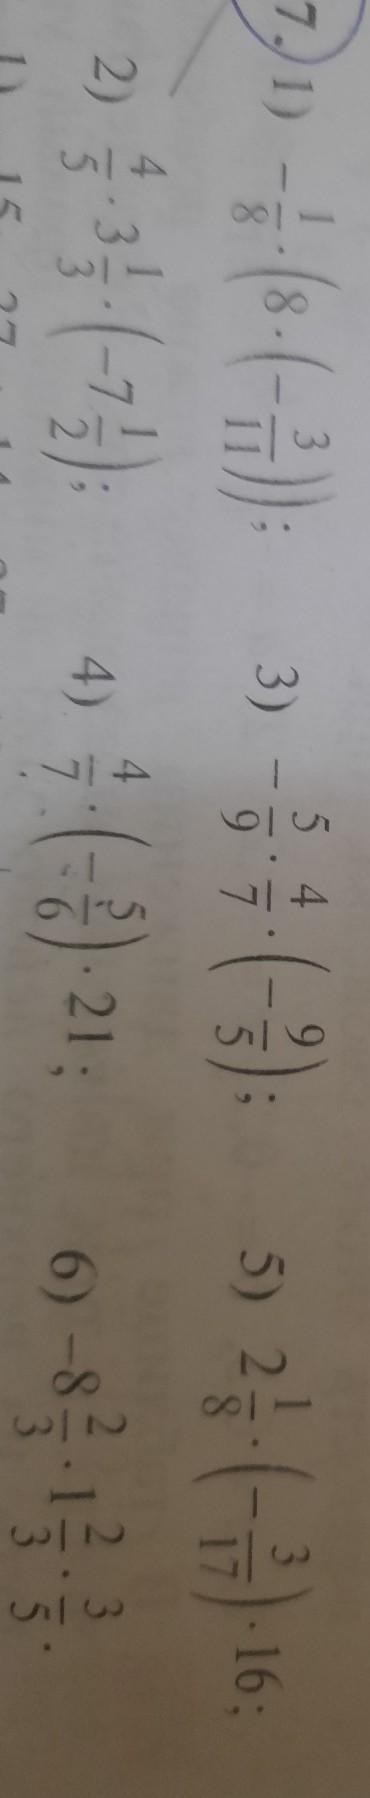 7. 1) $-\frac{1}{8} \cdot \left(8 \cdot \left(-\frac{3}{11}\right)\right)$; 3) $-\frac{5}{9} \cdot \frac{4}{7} \cdot \left(-\frac{9}{5}\right)$; 5) $2\frac{1}{8} \cdot \left(-\frac{3}{17}\right) \cdot 16$;
2) $\frac{4}{5} \cdot 3\frac{1}{3} \cdot \left(-7\frac{1}{2}\right)$; 4) $\frac{4}{7} \cdot \left(-\frac{5}{6}\right) \cdot 21$; 6) $-8\frac{2}{3} \cdot 1\frac{2}{3} \cdot \frac{3}{5}$.